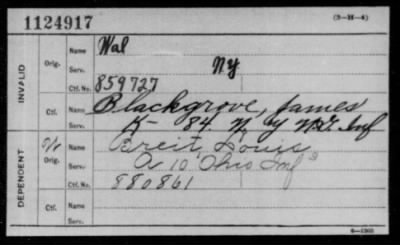 1124917
(3-H-4)
INVALID
Orig.
Name
Wal
Serv.
Ny
Ctf. No.
859727
Ctf.
Name
Blackgrove, James
Serv.
K- 84. N. Y N.G. Inf
DEPENDENT
Orig.
Name
Breit Louis
Serv.
A 10 Ohio Inf
Ctf. No.
880861
Ctf.
Name
Serv.